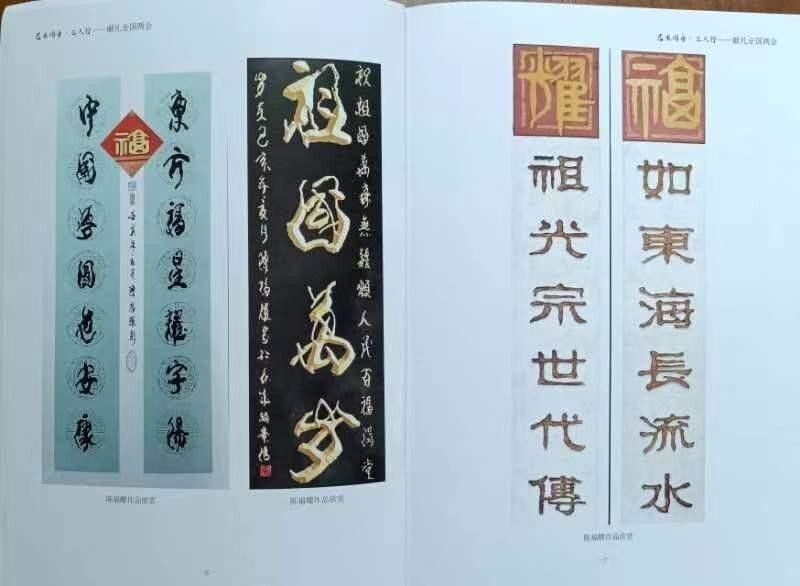 三人行——献礼全国两会
東方福星耀宇陽
福
中國夢圓世安康
陈福耀作品欣赏
祝祖國萬壽無疆願人民百福滿堂
祖國萬岁
陈福耀作品欣赏
-6-
三人行——献礼全国两会
福如東海長流水
耀祖光宗世代傳
陈福耀作品欣赏
-7-